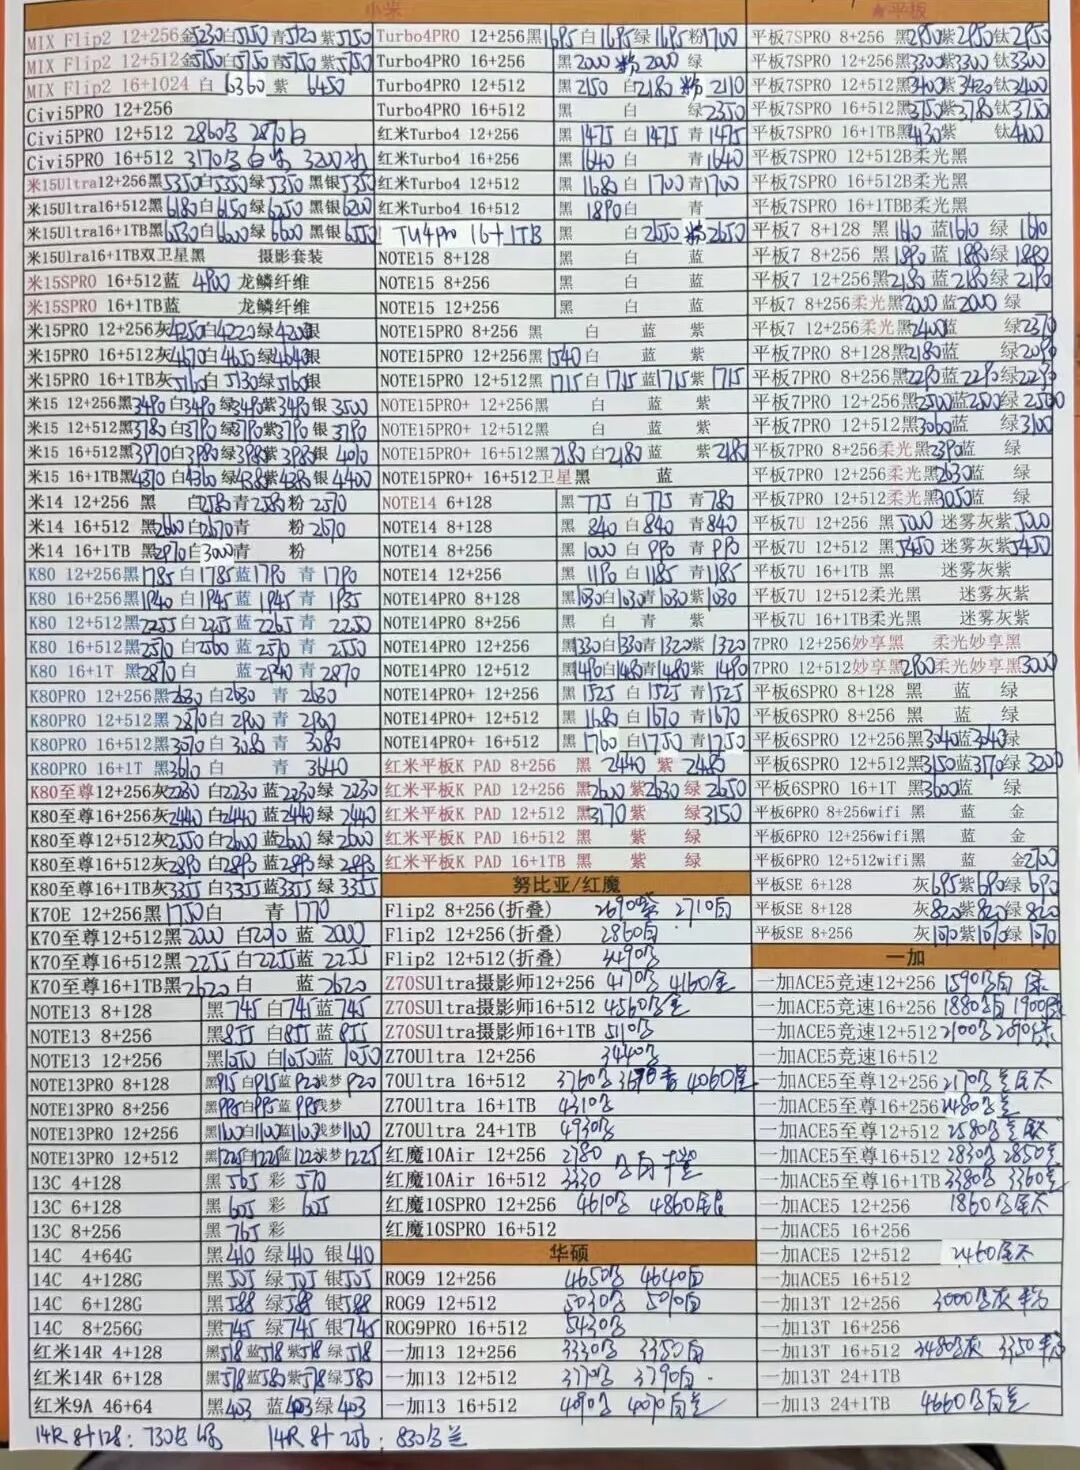 小米
平板
MIX Flip2 12+256金5230白5150青5120紫5150
MIX Flip2 12+512
MIX Flip2 16+1024 白 6360 紫 6450
Civi5PRO 12+256
Civi5PRO 12+512 2860 2870白
Civi5PRO 16+512 3170 3200
米15Ultra12+256黑5350白5350绿5350 黑银5350
米15Ultra16+512黑6180白6150绿6250 黑银6200
米15Ultra16+1TB黑6530白6600绿6600 黑银6550
米15Ulra16+1TB双卫星黑 摄影套装
米15SPRO 16+512蓝 4900 龙鳞纤维
米15SPRO 16+1TB蓝 龙鳞纤维
米15PRO 12+256灰4250白4220绿4200银
米15PRO 16+512灰4670白4650绿4640银
米15PRO 16+1TB灰5160白5130绿5160银
米15 12+256黑3490白3490绿3490紫3490银 3500
米15 12+512黑3780白3790绿3790紫3790银 3790
米15 16+512黑3970白3980绿3980紫3980银 4010
米15 16+1TB黑4370白4360绿4380紫4380银 4400
米14 12+256 黑 白2580青2580粉 2570
米14 16+512 黑2660白2670青 粉 2670
米14 16+1TB 黑2970白3000青 粉
K80 12+256黑1785白1785蓝1790 青1790
K80 16+256黑1940白1945蓝1945 青1935
K80 12+512黑2255白2255蓝2265 青2250
K80 16+512黑2570白2560蓝2570 青2550
K80 16+1T 黑2870白 蓝2840青2870
K80PRO 12+256黑2630白2630 青 2630
K80PRO 12+512黑2870白2900 青 2900
K80PRO 16+512黑3070白3080 青 3080
K80PRO 16+1T 黑3610白 青 3640
K80至尊12+256灰2230白2230蓝2230绿2230
K80至尊16+256灰2440白2440蓝2440绿2440
K80至尊12+512灰2550白2600蓝2600绿2600
K80至尊16+512灰2890白2890蓝2890绿2890
K80至尊16+1TB灰3355白3355蓝3355绿3355
K70E 12+256黑1750白 青1770
K70至尊12+512黑2000 白2010蓝2000
K70至尊16+512黑2255白2255蓝2255
K70至尊16+1TB黑2620白 蓝2620
NOTE13 8+128 黑745白745蓝745
NOTE13 8+256 黑855白855蓝855
NOTE13 12+256 黑1050白1050蓝1050
NOTE13PRO 8+128 黑915白915蓝920浅梦920
NOTE13PRO 8+256 黑995白995蓝995浅梦
NOTE13PRO 12+256 黑1100白1100蓝1100浅梦1100
NOTE13PRO 12+512 黑1225白1225蓝1220浅梦1225
13C 4+128 黑565彩 570
13C 6+128 黑605彩 605
13C 8+256 黑765彩
14C 4+64G 黑410绿410银410
14C 4+128G 黑505绿505银505
14C 6+128G 黑588绿588银588
14C 8+256G 黑745绿745银745
红米14R 4+128 黑518蓝518紫518绿518
红米14R 6+128 黑578蓝580紫578绿580
红米9A 46+64 黑403蓝403绿403
14R 8+128: 730 14R 8+256: 830
Turbo4PRO 12+256黑1695白1695绿1695粉1700
Turbo4PRO 16+256 黑2000粉2000绿
Turbo4PRO 12+512 黑2150 白2180粉2110
Turbo4PRO 16+512 黑 白 绿2350
红米Turbo4 12+256 黑1475白1475青1475
红米Turbo4 16+256 黑1640白 青1640
红米Turbo4 12+512 黑1680白1700青1700
红米Turbo4 16+512 黑1890白 青
TU4pro 16+1TB 黑 白2650粉2650
NOTE15 8+128 黑 白 蓝
NOTE15 8+256 黑 白 蓝
NOTE15 12+256 黑 白 蓝
NOTE15PRO 8+256 黑 白 蓝 紫
NOTE15PRO 12+256黑1540白 蓝 紫
NOTE15PRO 12+512黑1715白1715蓝1715紫1715
NOTE15PRO+ 12+256黑 白 蓝 紫
NOTE15PRO+ 12+512黑 白 蓝 紫
NOTE15PRO+ 16+512黑2180白2180蓝 紫2180
NOTE15PRO+ 16+512卫星黑 蓝
NOTE14 6+128 黑775白775青780
NOTE14 8+128 黑840白840青840
NOTE14 8+256 黑1000白990青990
NOTE14 12+256 黑1190白1185青1185
NOTE14PRO 8+128 黑1030白1030青1030紫1030
NOTE14PRO 8+256 黑 白 青 紫
NOTE14PRO 12+256 黑1330白1330青1320紫1320
NOTE14PRO 12+512 黑1490白1480青1480紫1490
NOTE14PRO+ 12+256 黑1525白1525青1525
NOTE14PRO+ 12+512 黑1680白1670青1670
NOTE14PRO+ 16+512 黑1760白1750青1750
红米平板K PAD 8+256 黑 2440 紫 2480
红米平板K PAD 12+256 黑2600紫2630绿2650
红米平板K PAD 12+512 黑3170紫 绿3150
红米平板K PAD 16+512 黑 紫 绿
红米平板K PAD 16+1TB 黑 紫 绿
努比亚/红魔
Flip2 8+256(折叠) 2690 2710白
Flip2 12+256(折叠) 2860白
Flip2 12+512(折叠)
Z70SUltra摄影师12+256 4160
Z70SUltra摄影师16+512 4560
Z70SUltra摄影师16+1TB 5110
Z70Ultra 12+256 3440
70Ultra 16+512 3760 4060
Z70Ultra 16+1TB 4310
Z70Ultra 24+1TB 4930
红魔10Air 12+256 2980
红魔10Air 16+512 3330
红魔10SPRO 12+256 4610 4860
红魔10SPRO 16+512
华硕
ROG9 12+256 4650 4640白
ROG9 12+512 5030 5010白
ROG9PRO 16+512 5430
一加13 12+256 3330 3350白
一加13 12+512 3770 3790白
一加13 16+512 4090 4070
平板7SPRO 8+256 黑2950紫2950钛2950
平板7SPRO 12+256黑3300紫3300钛3300
平板7SPRO 12+512黑3400紫3420钛3400
平板7SPRO 16+512黑3750紫3780钛3750
平板7SPRO 16+1TB黑4130紫 钛4100
平板7SPRO 12+512B柔光黑
平板7SPRO 16+512B柔光黑
平板7SPRO 16+1TBB柔光黑
平板7 8+128 黑1610蓝1610绿1610
平板7 8+256 黑1890蓝1880绿1880
平板7 12+256黑2180蓝2180绿2190
平板7 8+256柔光黑2000蓝2000绿
平板7 12+256柔光黑2400蓝 绿2370
平板7PRO 8+128黑2180蓝 绿2090
平板7PRO 8+256黑2290蓝2290绿2290
平板7PRO 12+256黑2500蓝2500绿2500
平板7PRO 12+512黑3060蓝 绿3100
平板7PRO 8+256柔光黑2390蓝 绿
平板7PRO 12+256柔光黑2630蓝 绿
平板7PRO 12+512柔光黑3050蓝 绿
平板7U 12+256 黑5000迷雾灰紫5000
平板7U 12+512 黑5450迷雾灰紫5450
平板7U 16+1TB 黑 迷雾灰紫
平板7U 12+512柔光黑 迷雾灰紫
平板7U 16+1TB柔光黑 迷雾灰紫
7PRO 12+256妙享黑 柔光妙享黑
7PRO 12+512妙享黑2900柔光妙享黑3000
平板6SPRO 8+128 黑 蓝 绿
平板6SPRO 8+256 黑 蓝 绿
平板6SPRO 12+256黑3040蓝3040绿
平板6SPRO 12+512黑3150蓝3170绿3200
平板6SPRO 16+1T 黑3600蓝 绿
平板6PRO 8+256wifi 黑 蓝 金
平板6PRO 12+256wifi黑 蓝 金
平板6PRO 12+512wifi黑 蓝 金2700
平板SE 6+128 灰695紫690绿690
平板SE 8+128 灰820紫820绿820
平板SE 8+256 灰1070紫1070绿1070
一加
一加ACE5竞速12+256 1590
一加ACE5竞速16+256 1880 1900
一加ACE5竞速12+512 2100 2090
一加ACE5竞速16+512
一加ACE5至尊12+256 2170
一加ACE5至尊16+256 2480
一加ACE5至尊12+512 2580
一加ACE5至尊16+512 2830 2850
一加ACE5至尊16+1TB 3380 3360
一加ACE5 12+256 1860
一加ACE5 16+256
一加ACE5 12+512 2460
一加ACE5 16+512
一加13T 12+256 3000
一加13T 16+256
一加13T 16+512 3480 3350
一加13T 24+1TB
一加13 24+1TB 4660